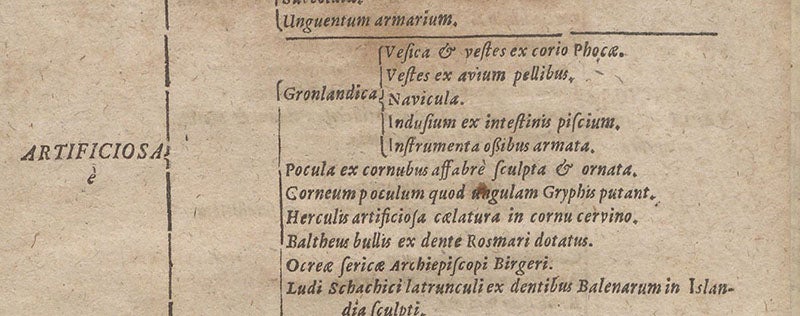 Unguentum armarium.
Vesica & vestes ex corio Phocæ.
Vestes ex avium pellibus.
Gronlandica
Navicula.
Indusium ex intestinis piscium.
Instrumenta oßibus armata.
ARTIFICIOSA
è
Pocula ex cornubus affabrè sculpta & ornata.
Corneum poculum quod ungulam Gryphis putant.
Herculis artificiosa cælatura in cornu cervino.
Baltheus bullis ex dente Rosmari dotatus.
Ocreæ sericæ Archiepiscopi Birgeri.
Ludi Schachici latrunculi ex dentibus Balenarum in Islan-
dia sculpti.